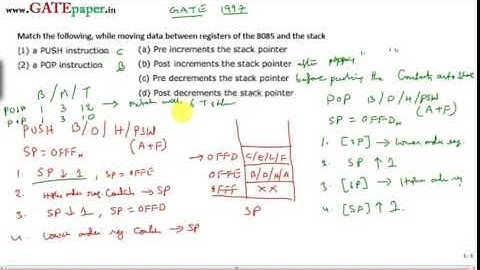 www.GATEpaper.in
GATE 1997
Match the following, while moving data between registers of the 8085 and the stack
(1) a PUSH instruction C
(a) Pre increments the stack pointer
(2) a POP instruction B
(b) Post increments the stack pointer after popping
(c) Pre decrements the stack pointer before pushing the Contents onto Stack
(d) Post decrements the stack pointer
B / M / T
PUSH 1 3 12
POP 1 3 10
6 T
PUSH B/D/H/PSW
(A+F)
SP = 0FFFH
1. SP ↓ 1, SP = 0FFE
2. Higher order reg → SP
3. SP ↓ 1, SP = 0FFD
4. Lower order reg → SP
0FFD C/E/L/F
0FFE B/D/H/A
0FFF XX
SP
POP B/D/H/PSW
(A+F)
SP = 0FFDH
1. [SP] → Lower order reg
2. SP ↑ 1
3. [SP] → Higher order reg
4. [SP] ↑ 1.